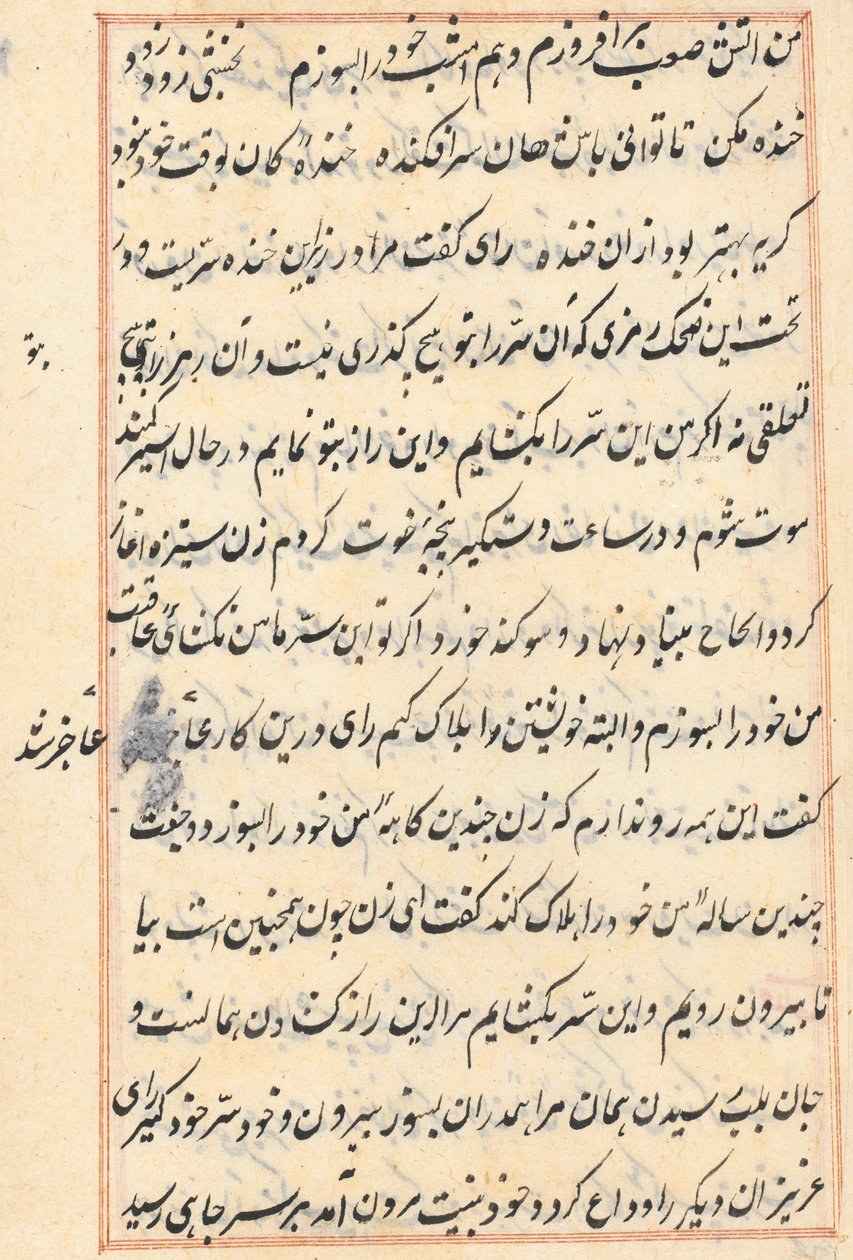 من اتش صعب برافروزم وهم امشب خود را بسوزم نخشبی زود زود
خنده مکن تا توانی باش هان سرافکنده خندهٔ کان بوقت خود نبود
کریه بهتر بود ازان خنده رای کفت مرا در زیر این خنده سرّیست و در
تحت این ضحک رمزی که آن سرّ را بتو هیچ کذری نیست و آن رمز را بتو هیچ
تعلقی نه اکر من این سرّ را بکشایم و این راز بتو نمایم در حال اسیر کمند
موت شوم و در ساعت دستکیر پنجهٔ فوت کردم زن ستیزه اغاز
کرد و الحاح بنیاد نهاد و سوکند خورد اکر تو این سرّ با من نکشائی عاقبت
من خود را بسوزم و البته خویشتن را هلاک کنم رای درین کار عاجز
عاجز شد
کفت این همه روا ندارم که زن چندین کاههٔ من خود را بسوزد و جفت
چندین سالهٔ من خود را هلاک کند کفت ای زن چون همچنین است بیا
تا بیرون رویم و این سّر بکشایم مرا این راز کشادن همانست و
جان بلب رسیدن همان مرا همدران بسوز بیرون و خود سّر خود کیر رای
عزیزان دیکر را وداع کرد و خود بنیت مردن آمد بر سر چاهی رسید
بتو